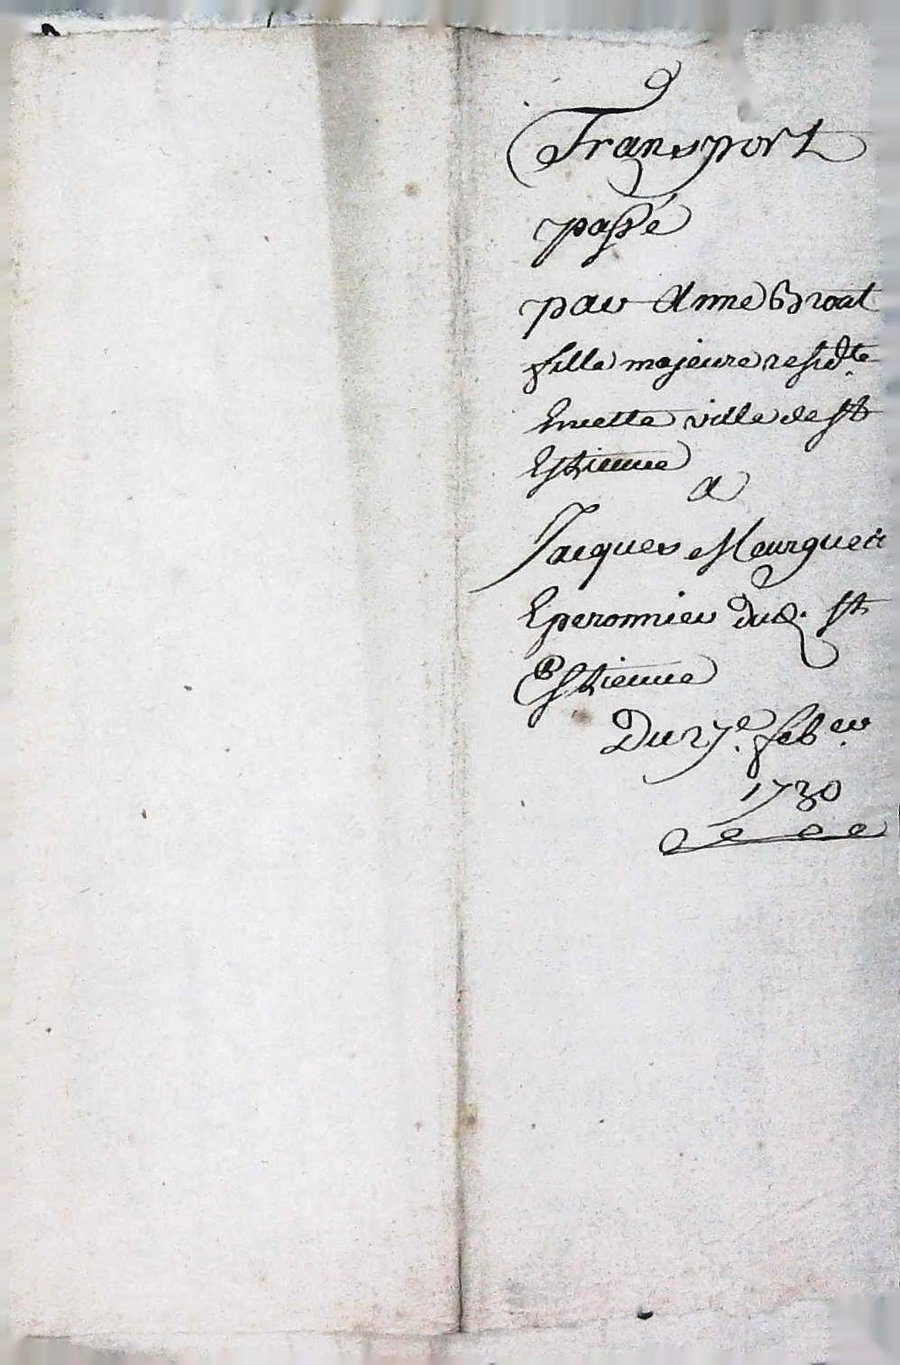 Transport
passé
par Anne Broat
fille majeure resid.te
En cette ville de St
Estienne
A
Jacques Mourguet
Eperonnier dud. St
Estienne
Du 27e. feb.er
1730